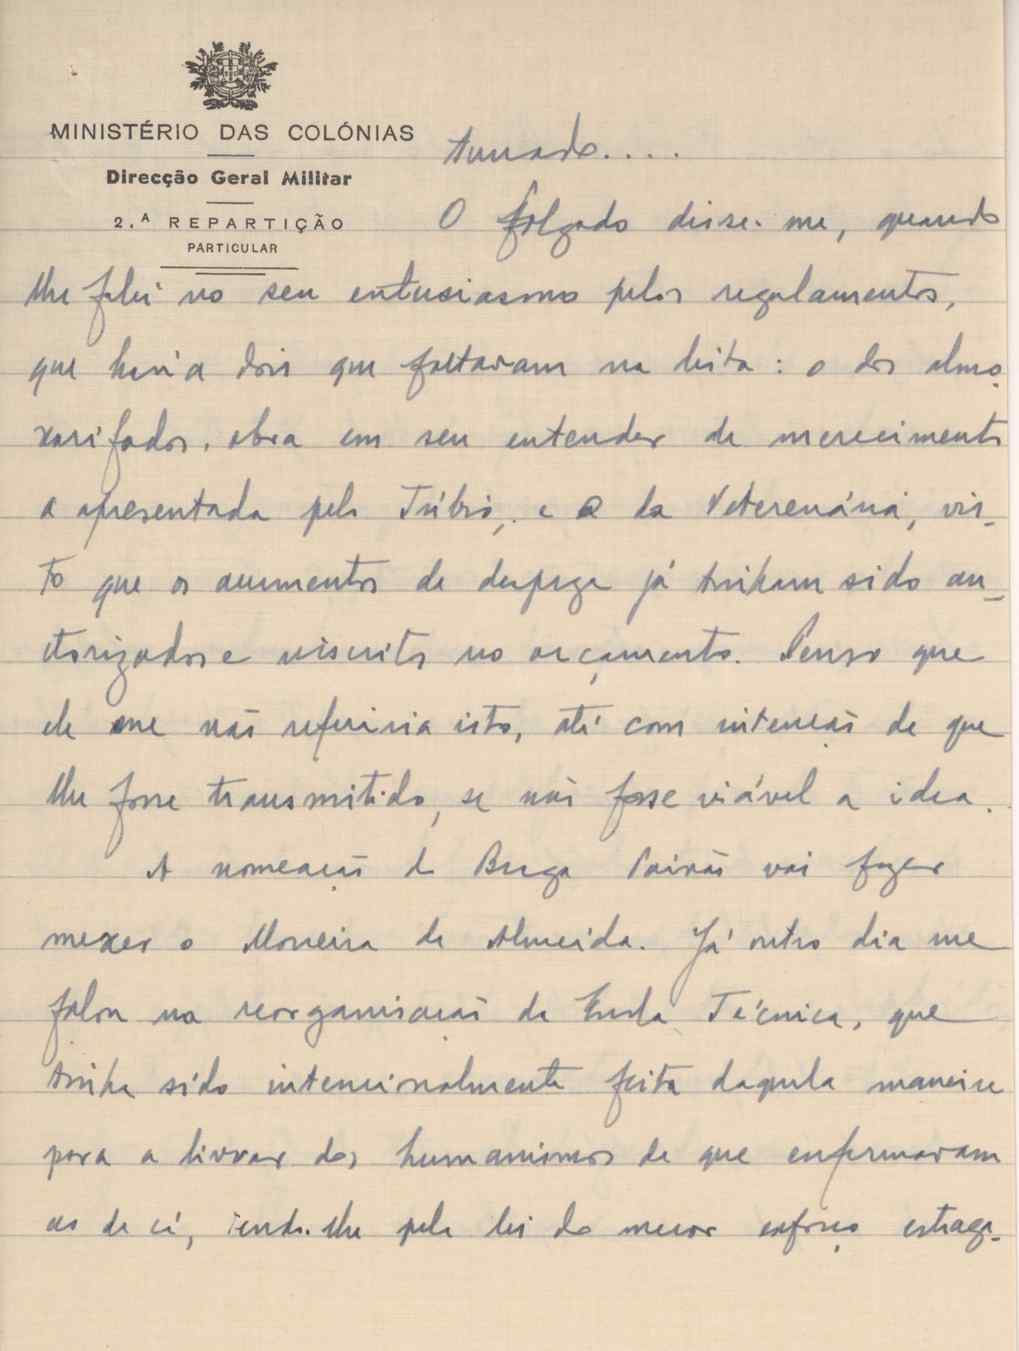 MINISTÉRIO DAS COLÓNIAS
Direcção Geral Militar
2.ª REPARTIÇÃO
PARTICULAR
tunado....
O Folgado disse-me, quando
lhe falei no seu entusiasmo pelos regulamentos,
que havia dois que faltavam na lista: o dos almo-
xarifados, obra em seu entender de merecimento
a apresentada pelo Túbio, e o da Veterenária, vis-
to que os aumentos de despeza já tinham sido au-
torizados e inscritos no orçamento. Penso que
ele me não referiria isto, até com intenção de que
lhe fosse transmitido, se não fosse viável a idea.
A nomeação do Braga Paixão vai fazer
mexer o Moreira de Almeida. Já outro dia me
falou na reorganisação da Escola Técnica, que
tinha sido intencionalmente feita daquela maneira
para a livrar dos humanismos de que enfermavam
as de cá, pela lei do menor esforço estraga-